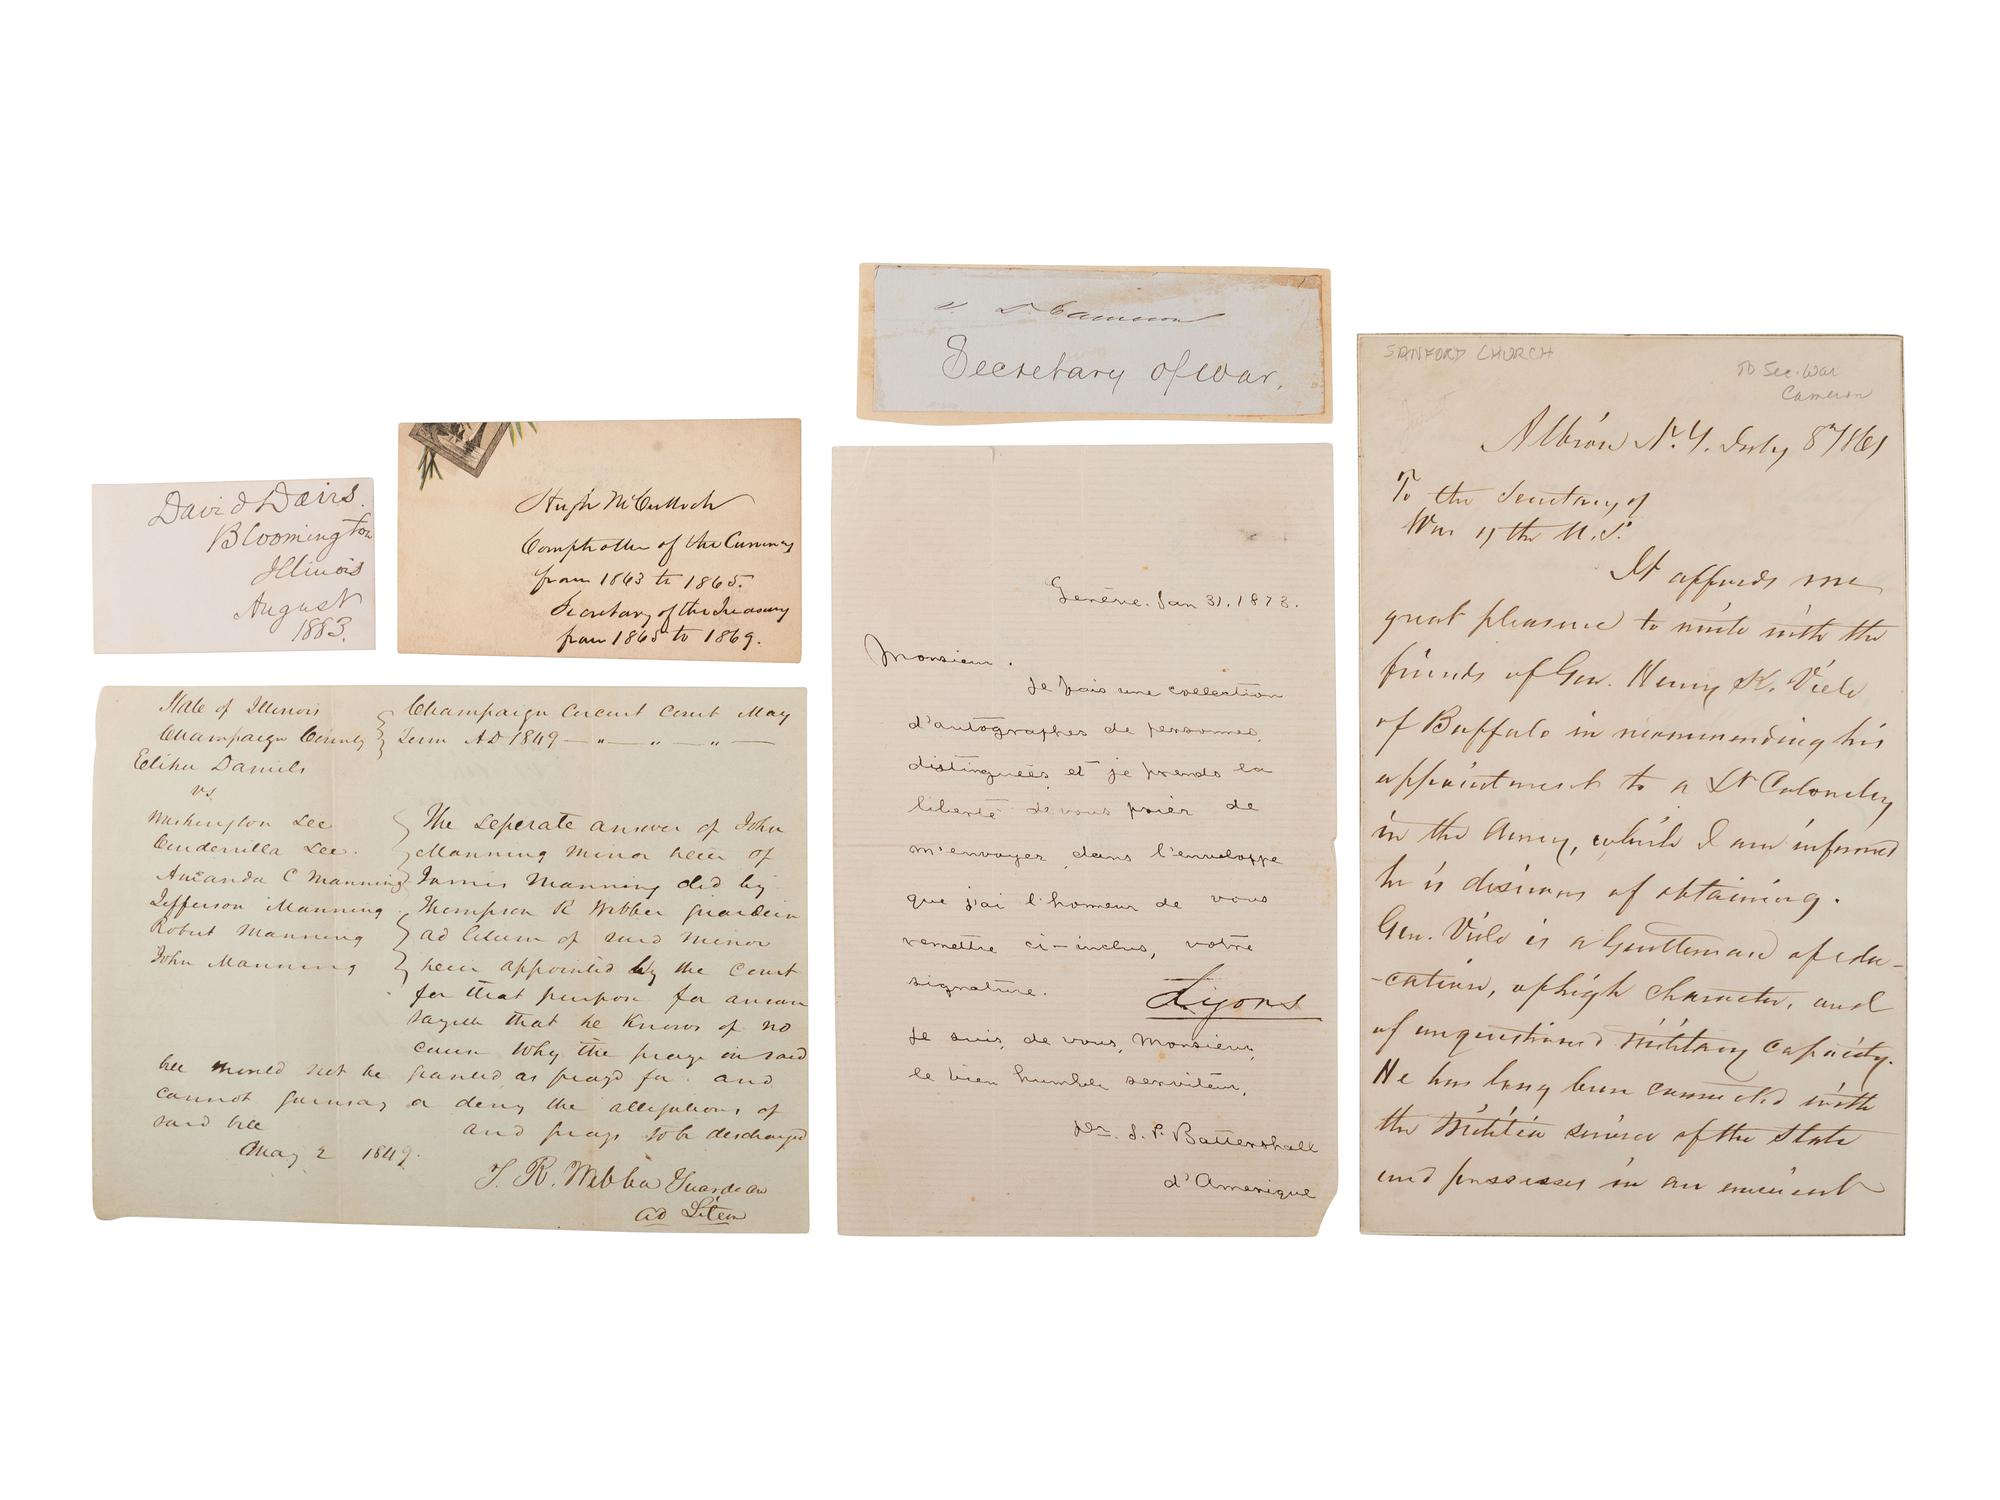 David Davis.
Bloomington
Illinois
August
1883.
Hugh McCulloch
Comptroller of the Currency
from 1863 to 1865.
Secretary of the Treasury
from 1865 to 1869.
State of Illinois
Champaign County
Champaign Circuit Court May
Term AD 1849 — " — " — " —
Elihu Daniels
vs
Washington Lee
Cinderrilla Lee.
Amanda C Manning
Jefferson Manning
Robert Manning
John Manning
The seperate answer of John
Manning minor heir of
James Manning decd by
Thompson R Webber guardein
ad litum of said minor
heir appointed by the Court
for that purpose for answer
sayeth that he knows of no
cause why the prayr in said
bill should not be granted as prayd for and
cannot gainsay or deny the allegations of
said bill and prays to be discharged
May 2 1849.
T. R. Webber Guardean
ad Litem
S. Cameron
Secretary of War.
Genève. Jan 31. 1873.
Monsieur.
Je fais une collection
d'autographes de personnes,
distinguées et je prends la
liberté de vous prier de
m'envoyer, dans l'enveloppe
que j'ai l'honneur de vous
remettre ci-inclus, votre
signature.
Lyons
Je suis, de vous, Monsieur,
le bien humble serviteur,
Dr. S. P. Battershall
d'Amerique
SANFORD CHURCH
To Sec. War
Cameron
Albion N.Y. July 8th 1861
To the Secretary of
War of the U.S.
It affords me
great pleasure to unite with the
friends of Gen. Henry K. Viele
of Buffalo in recommending his
appointment to a Lt Colonelcy
in the Army, which I am informed
he is desirous of obtaining.
Gen. Viele is a Gentleman of edu-
-cation, of high character, and
of unquestioned military capacity.
He has long been connected with
the Militia service of the State
and possesses in an eminent